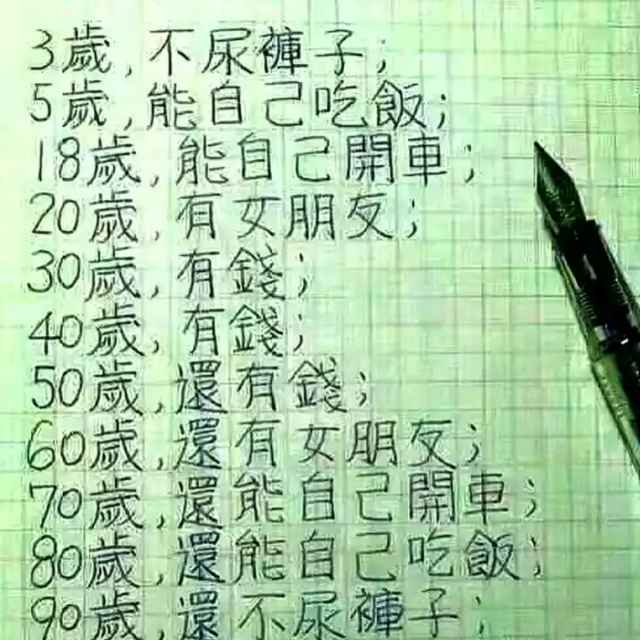 3歲,不尿褲子;
5歲,能自己吃飯;
18歲,能自己開車;
20歲,有女朋友;
30歲,有錢;
40歲,有錢;
50歲,還有錢;
60歲,還有女朋友;
70歲,還能自己開車;
80歲,還能自己吃飯;
90歲,還不尿褲子;